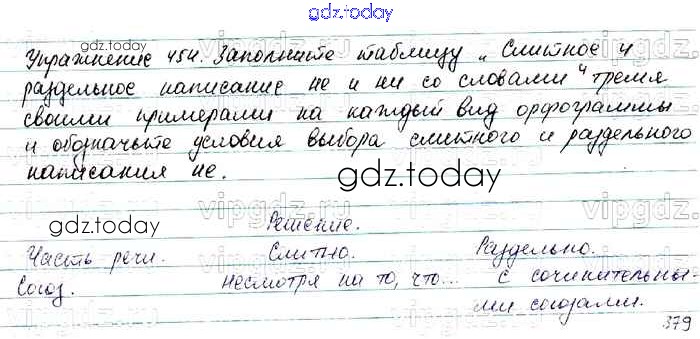 gdz.today
Упражнение 454. Заполните таблицу „Слитное и
gdz.today
раздельное написание не и ни со словами“ тремя
своими примерами на каждый вид орфограммы
и обозначьте условия выбора слитного и раздельного
написания не.
gdz.today
gdz.today
Решение.
Часть речи. Слитно. Раздельно.
Союз. несмотря на то, что... с сочинительны-
ми союзами.
379